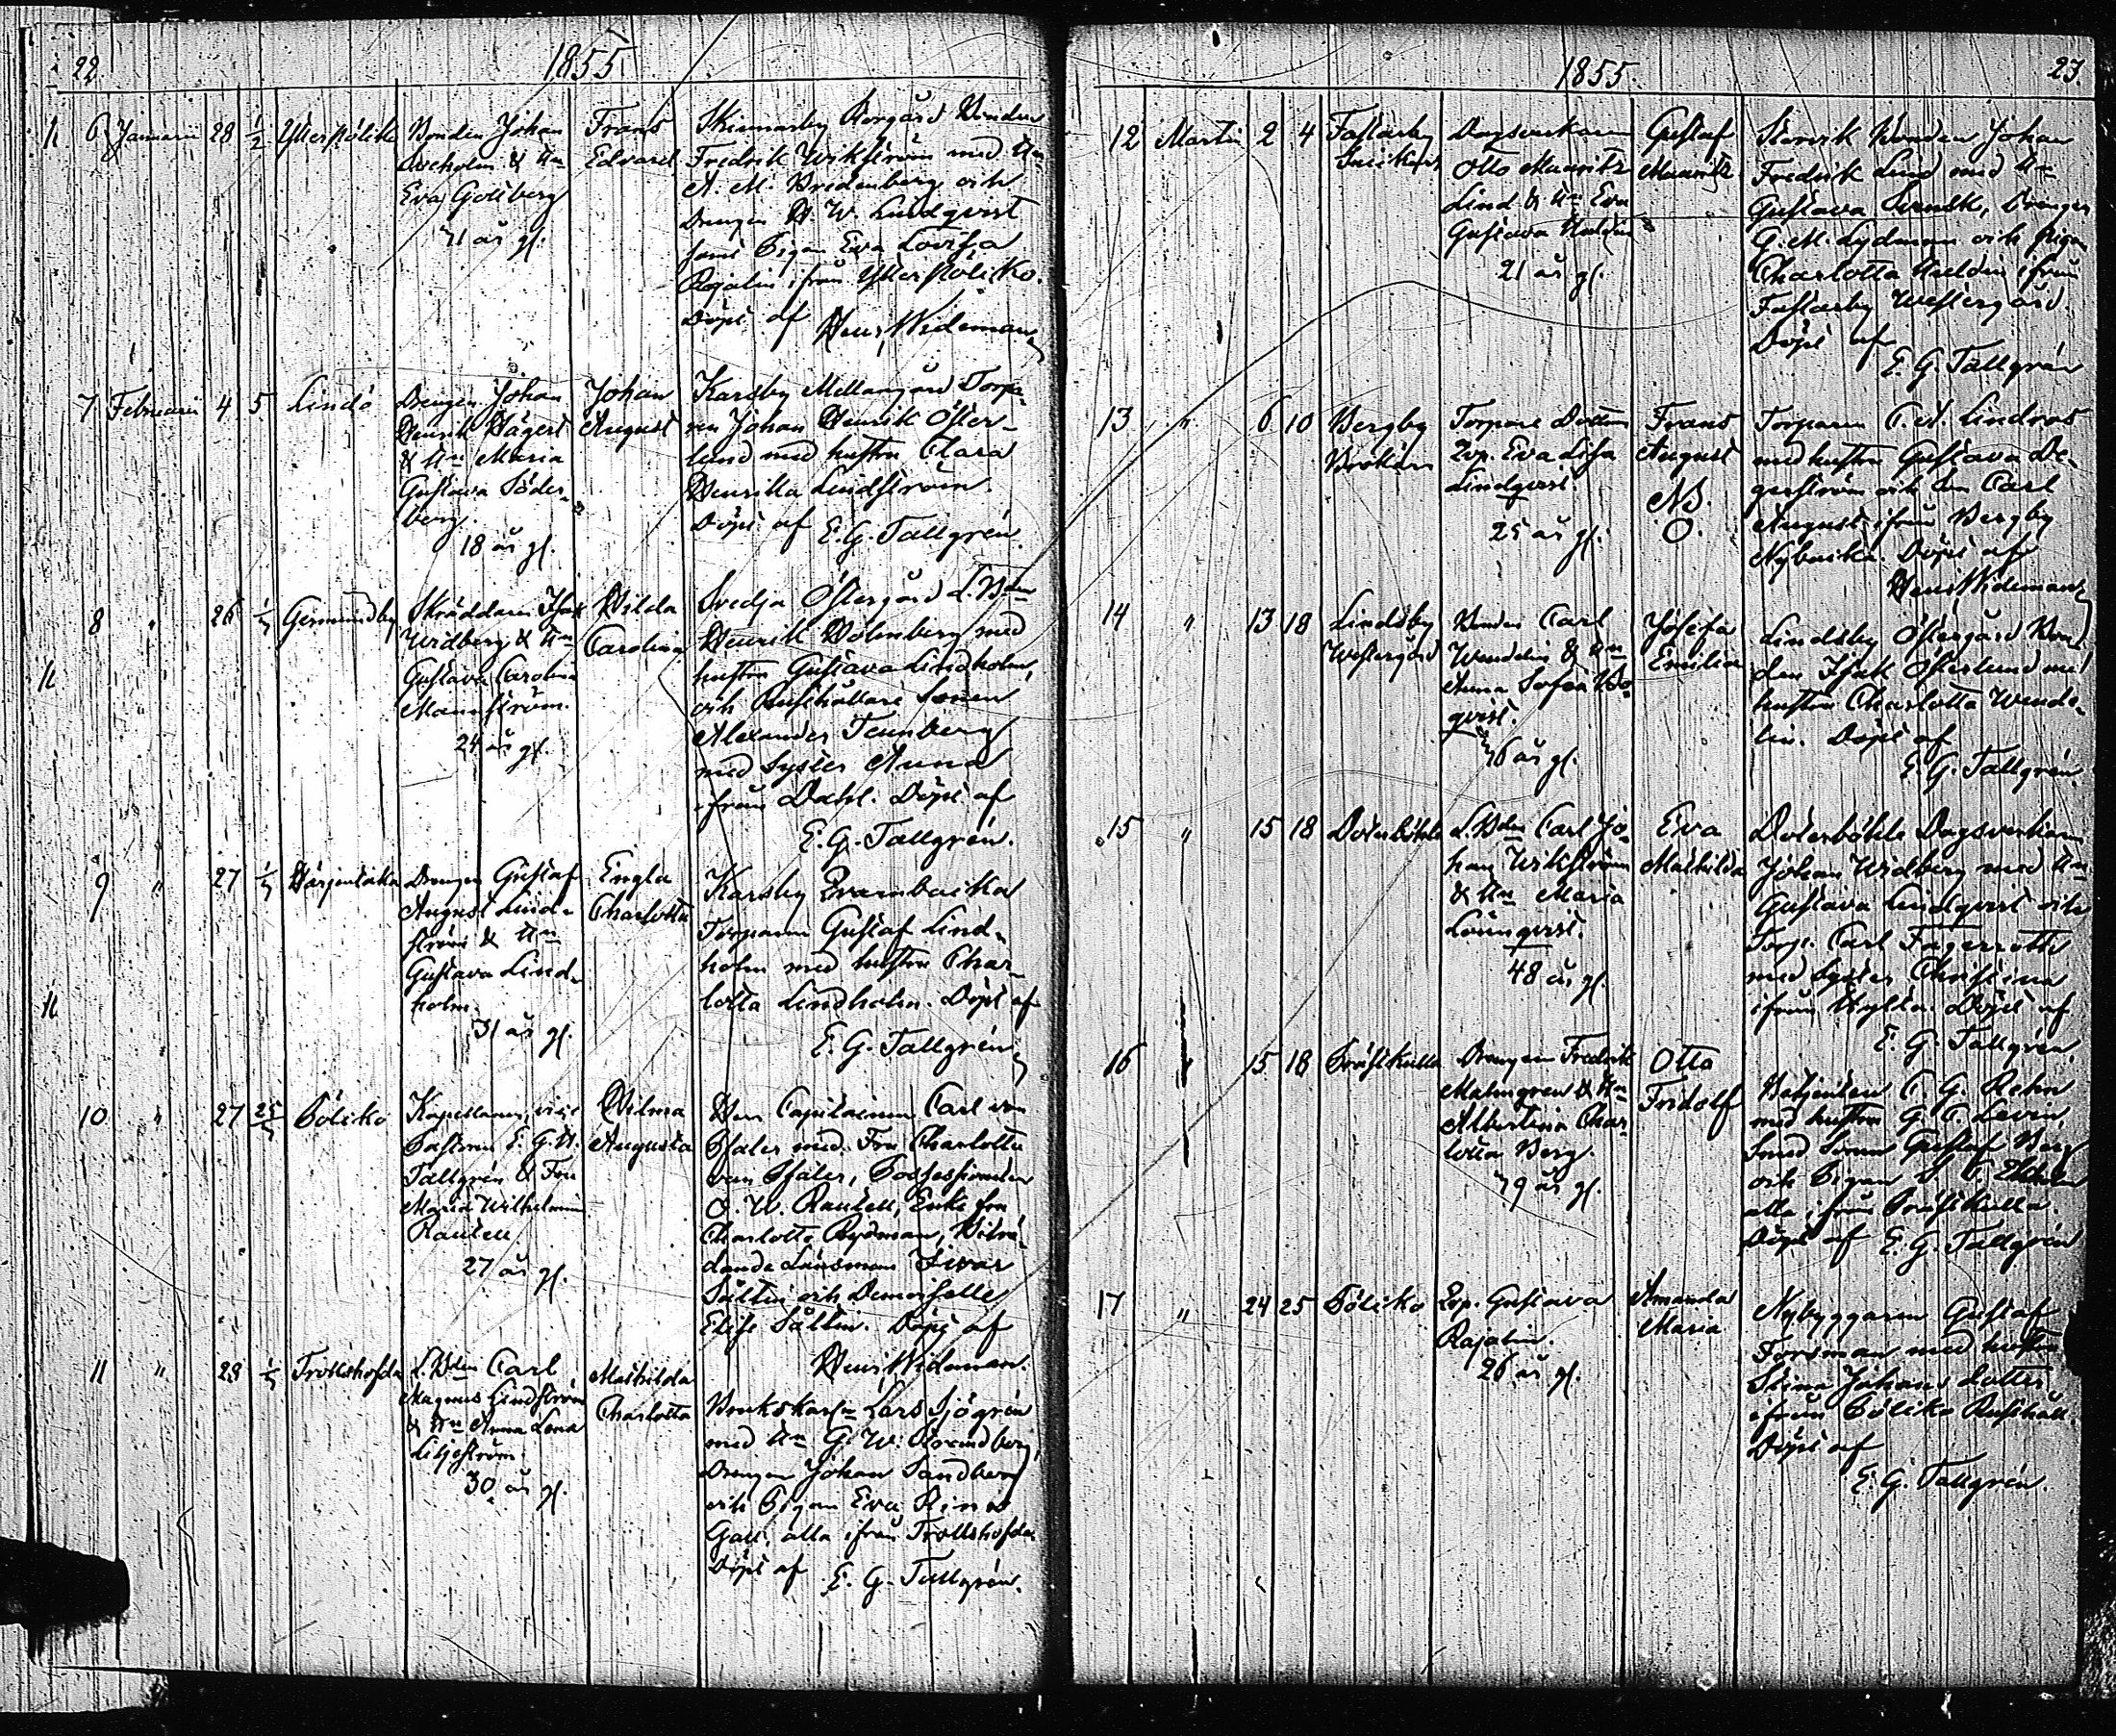 22
1855
6 Januarii 28 1/2 Ytterpölikö
Bonden Johan
& Hu
Eva Gottberg
41 år gl.
Frans
Edvard
Skinnarby Norgård Bonden
Fredrik Wikström med Hu
A. M. Bredenberg och
Drengen H. W. Lindqvist
samt Pigan Eva Lovisa
Rajalin ifrån Ytterpölikö.
Döpt af Henr. Wideman
7 Februarii 4 5 Lindö
Drengen Johan
Henrik Hägert
& Hu Maria
Gustava Söder-
berg.
18 år gl.
Johan
August
Karsby Mellangård Torpa-
ren Johan Henrik Öster-
lund med hustru Clara
Henrika Lindström.
Döpt af E. G. Tallgrén.
8 " 26 1/4 Germundby
Skräddaren Isak
Widberg & Hu
Gustava Carolina
Mannström.
24 år gl.
Hilda
Carolina
Svedja Östergård L. Bden
Henrik Holmberg med
hustru Gustava Lindholm,
och Rusthållare Sonen
Alexander Tennberg
med Syster Anna
ifrån Dahl. Döpt af
E. G. Tallgrén.
9 " 27 1/4
Drengen Gustaf
August Lind-
ström & Hu
Gustava Lind-
holm.
31 år gl.
Engla
Charlotta
Karsby Qvarnbacka
Torparen Gustaf Lind-
holm med hustru Char-
lotta Lindholm. Döpt af
E. G. Tallgrén
10 " 27 25/4 Pölikö
Kapellanen, vice
Pastoren E. G. A.
Tallgrén & Fru
Maria Wilhelmina
27 år gl.
Hilma
Augusta
Herr Capitainen Carl von
Pfaler med Fru Charlotta
von Pfaler, Possessionaten
O. W. Enke fru
Charlotta Rydman, Biträ-
dande Länsman Iwar
Sältin och Demoiselle
Elise Sältin. Döpt af
Henr. Wideman.
11 " 28 1/4 Trollshofda
L. Bden Carl
Magnus Lindström
& Hu Anna Lena
Liljeström.
30 år gl.
Mathilda
Charlotta
Brukskarln Lars Sjögrén
med Hu G. W. Strandberg,
Drengen Johan Sandberg
och Pigan Eva Rina
Gall, alla ifrån Trollshofda
Döpt af E. G. Tallgrén.
1855.
23
12 Martii 2 4 Fastarby
Snickars
Dagsverkaren
Otto Mauritz
Lind & Hu Eva
Gustava Huldin
21 år gl.
Gustaf
Mauritz
Storvik Bonden Johan
Fredrik Lind med Hu
Gustava Svensk, Drengen
G. M. Lydman och Pigan
Charlotta Huldin ifrån
Fastarby Westergård.
Döpt af
E. G. Tallgrén
13 " 6 10 Bergby
Torpare Dottren
Lvp. Eva Lisa
Lindqvist
25 år gl.
Frans
August
NB.
O.
Torparen C. A. Lindroos
med hustru Gustava De-
gerström och son Carl
August ifrån Bergby
Nybacka. Döpt af
Henr. Wideman
14 " 13 18 Lindsby
Westergård
Bonden Carl
Wendelin & Hu
Anna Sofia Bo-
qvist.
46 år gl.
Josefa
Emilia
Lindsby Östergård Bon-
den Isak Österlund med
hustru Charlotta Wende-
lin. Döpt af
E. G. Tallgrén
15 " 15 18 Doterböhle
L. Bden Carl Jo-
han Wikström
& Hu Maria
Lönnqvist.
48 år gl.
Eva
Mathilda
Doterböhle Dagsverkaren
Johan Widberg med Hu
Gustava Lindqvist och
Torp. Carl Fagerroth
med Syster Christina
ifrån Hylta. Döpt af
E. G. Tallgrén.
16 " 15 18 Prästkulla
Drengen Fredrik
Malmgren & Hu
Albertina Char-
lotta Berg.
49 år gl.
Otto
Fridolf
Betjenten C. G. Rehn
med hustru G. C. Levin
Smed Sonen Gustaf Berg
och Pigan
alla ifrån Prästkulla.
Döpt af E. G. Tallgrén
17 " 24 25 Pölikö
Lvp. Gustava
Rajalin.
26 år gl.
Amanda
Maria
Nybyggaren Gustaf
Forsman med hustru
Stina Johans dotter
ifrån Pölikö Rusthåll
Döpt af
E. G. Tallgrén.